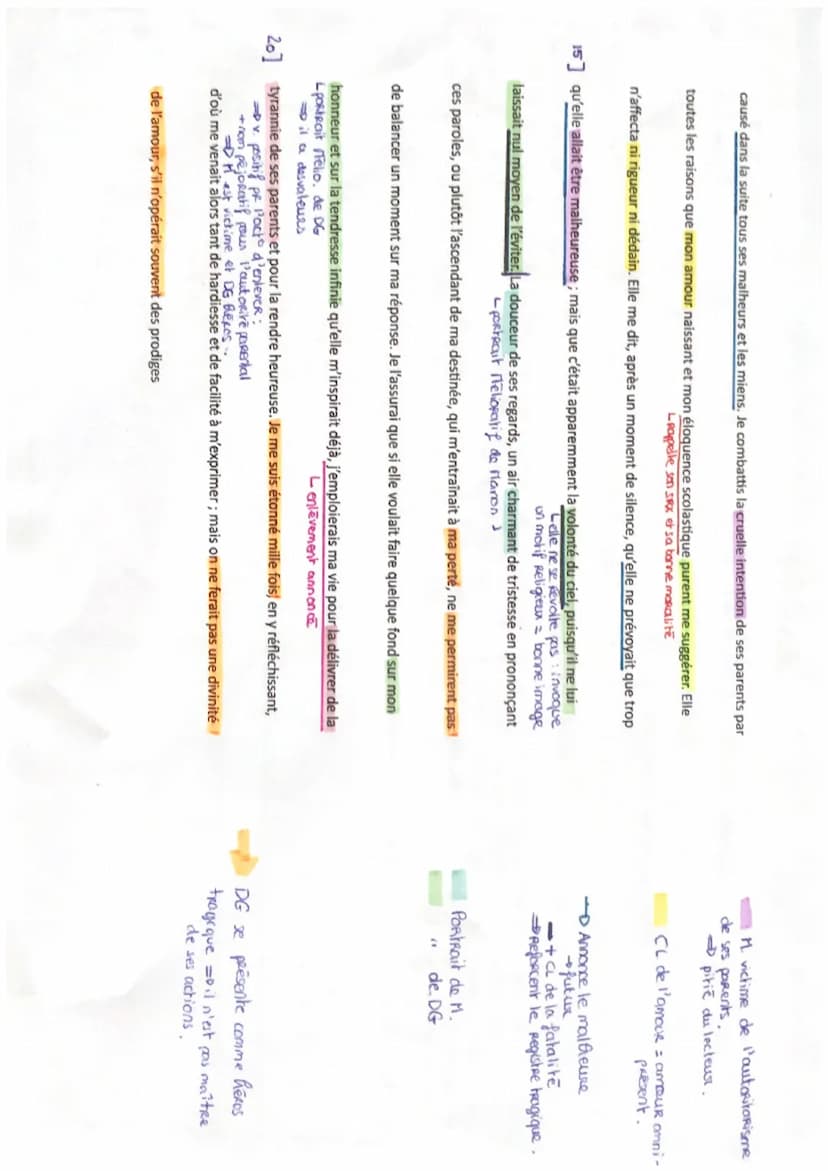 causé dans la suite tous ses malheurs et les miens. Je combattis la cruelle intention de ses parents par
toutes les raisons que mon amour naissant et mon éloquence scolastique purent me suggérer. Elle
↳ rappelle son sexe et sa bonne moralité
n'affecta ni rigueur ni dédain. Elle me dit, après un moment de silence, qu'elle ne prévoyait que trop
15] qu'elle allait être malheureuse ; mais que c'était apparemment la volonté du ciel, puisqu'il ne lui
↳ elle ne se révolte pas : invoque
un motif religieux = bonne image
laissait nul moyen de l'éviter. La douceur de ses regards, un air charmant de tristesse en prononçant
↳ portrait mélioratif de Manon
ces paroles, ou plutôt l'ascendant de ma destinée, qui m'entraînait à ma perte, ne me permirent pas
de balancer un moment sur ma réponse. Je l'assurai que si elle voulait faire quelque fond sur mon
honneur et sur la tendresse infinie qu'elle m'inspirait déjà, j'emploierais ma vie pour la délivrer de la
↳ portrait mélio. de DG
⇒ il a des valeurs
↳ enlèvement annoncé
20] tyrannie de ses parents et pour la rendre heureuse. Je me suis étonné mille fois, en y réfléchissant,
⇒ v. positif pr l'act° d'enlever :
+ nom péjoratif pour l'autorité parental
⇒ M est victime et DG héros.
d'où me venait alors tant de hardiesse et de facilité à m'exprimer ; mais on ne ferait pas une divinité
de l'amour, s'il n'opérait souvent des prodiges
M. victime de l'autoritarisme
de ses parents.
⇒ pitié du lecteur.
CL de l'amour = amour omni-
présent.
→ Annonce le malheur
→ futur
→ + CL de la fatalité
⇒ renforcent le registre tragique.
Portrait de M.
" de DG
DG se présente comme héros
tragique ⇒ il n'est pas maître
de ses actions.